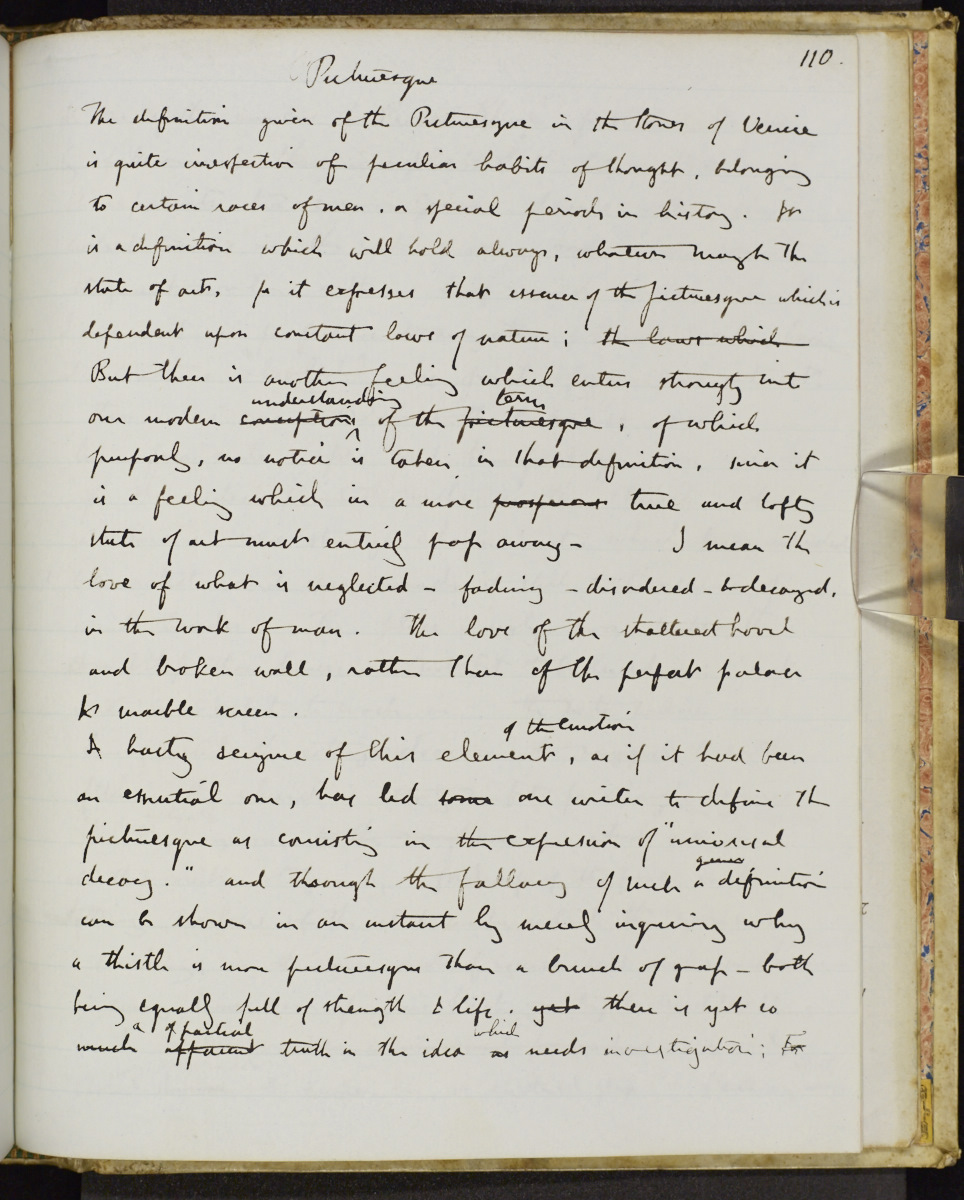 110.
Picturesque
The definition given of the Picturesque in the Stones of Venice
is quite irrespective of peculiar habits of thought, belonging
to certain races of men, or special periods in history. It
is a definition which will hold always, whatever may be the
state of art, for it expresses that essence of the picturesque which is
dependent upon constant laws of nature; the laws which
But there is another feeling which enters strongly into
understanding term
our modern conceptions of the picturesque, of which
purposely, no notice is taken in that definition, since it
is a feeling which in a more prosperous true and lofty
state of art must entirely pass away - I mean the
love of what is neglected - fading - disordered - or decayed,
in the work of man. The love of the shattered hovel
and broken wall, rather than of the perfect palace
& marble screen.
of the emotion
A hasty seizure of this element, as if it had been
an essential one, has led some one writer to define the
picturesque as consisting in the expression of "universal
decay." and though the fallacy of such a definition
can be shown in an instant by merely inquiring why
a thistle is more picturesque than a bunch of grass - both
being equally full of strength & life. yet there is yet so
a of partial which
much apparent truth in the idea as needs investigation; For